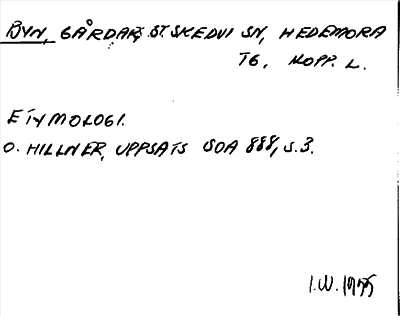 BYN, GÅRDAR, ST. SKEDVI SN, HEDEMORA
TG, KOPP. L.
ETYMOLOGI.
O. HILLNER, UPPSATS SOA 888, S.3.
I.W. 1975